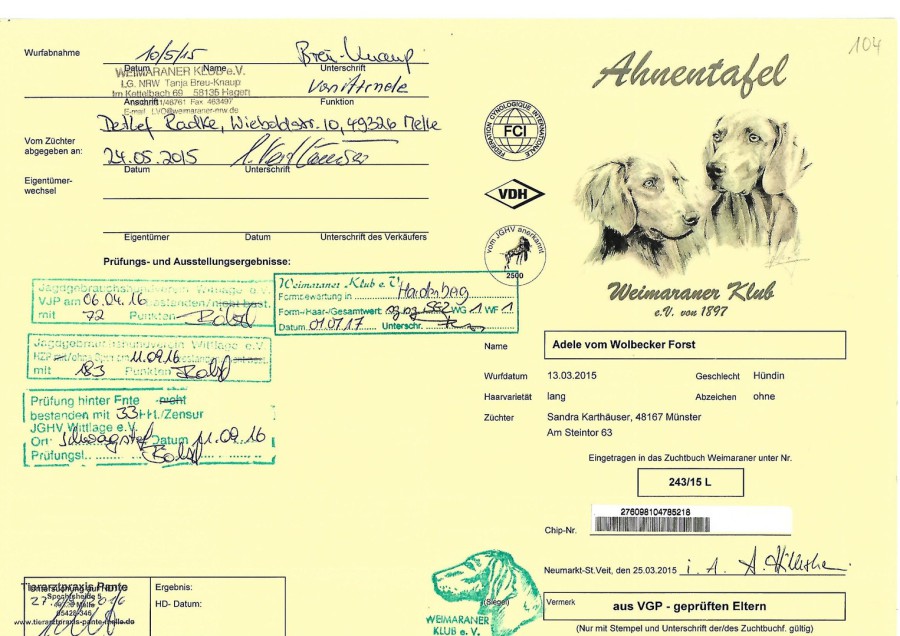 104
Wurfabnahme
10/5/15
Datum Name Unterschrift
WEIMARANER KLUB e.V.
LG. NRW Tanja Breu-Knaup
Im Kettelbach 69 58135 Hagen
Anschrift Funktion
E-mail: LVO@weimaraner-nrw.de
Detlef Radke, Wieboldstr. 10, 49326 Melle
Vom Züchter
abgegeben an:
24.05.2015
Datum Unterschrift
Eigentümer-
wechsel
Eigentümer Datum Unterschrift des Verkäufers
Prüfungs- und Ausstellungsergebnisse:
VJP am 06.04.16 bestanden/nicht best.
mit 72 Punkten
Weimaraner Klub e.V.
Formbewertung in Hardenberg
Form-/Haar-/Gesamtwert: sg sg SG2 WG 1 WF 1
Datum 01.07.17 Unterschr.
11.09.16
mit 183 Punkten
Prüfung hinter Ente nicht
bestanden mit 33
JGHV Wittlage e.V.
Ort: Datum 11.09.16
Prüfungsl.
Tierarztpraxis Pante
49326 Melle
www.tierarztpraxis-pante-melle.de
Ergebnis:
HD- Datum:
Ahnentafel
FEDERATION CYNOLOGIQUE INTERNATIONALE
FCI
VDH
vom JGHV anerkannt
2500
Weimaraner Klub
e.V. von 1897
Name Adele vom Wolbecker Forst
Wurfdatum 13.03.2015 Geschlecht Hündin
Haarvarietät lang Abzeichen ohne
Züchter Sandra Karthäuser, 48167 Münster
Am Steintor 63
Eingetragen in das Zuchtbuch Weimaraner unter Nr.
243/15 L
276098104785218
Chip-Nr.
Neumarkt-St.Veit, den 25.03.2015 i. A.
(Siegel)
WEIMARANER
KLUB e. V.
Vermerk aus VGP - geprüften Eltern
(Nur mit Stempel und Unterschrift der/des Zuchtbuchf. gültig)